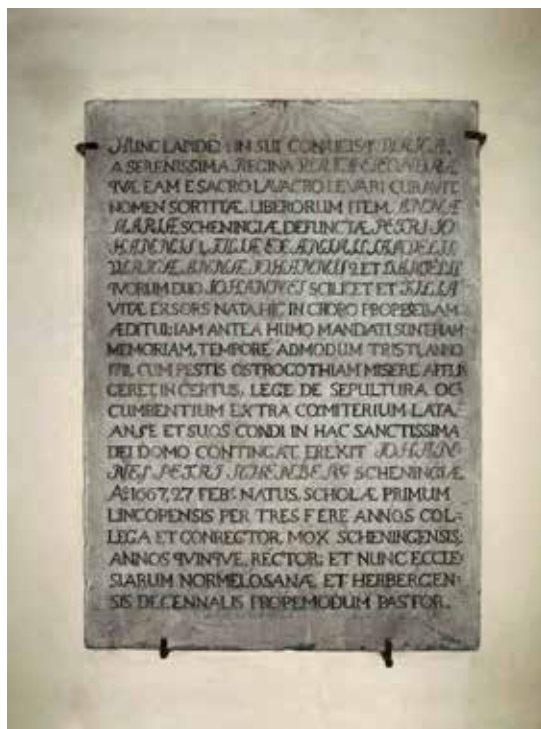 HUNC LAPIDEM IN SUI CONJUGISQ
A SERENISSIMA REGINA
QVÆ EAM E SACRO LAVACRO LEVARI CURAVIT
NOMEN SORTITÆ, LIBERORUM ITEM, ANNÆ
MARIÆ SCHENINGIÆ DEFUNCTÆ, PETRI JO
HANNIS
ULRICÆ, ANNÆ, JOHANNIS ET DANIELIS
QVORUM DUO, JOHANNES SCILICET ET
VITÆ EXSORS NATA, HIC IN CHORO PROPE
ÆDITUI, IAM ANTEA HUMO MANDATI SUNT
MEMORIAM, TEMPORE ADMODUM TRISTI, ANNO
CUM PESTIS OSTROGOTHIAM MISERE AFFLI
GERET, INCERTUS, LEGE DE SEPULTURA OC
CUMBENTIUM EXTRA COEMITERIUM LATA,
AN SE ET SUOS CONDI IN HAC SANCTISSIMA
DEI DOMO CONTINGAT, EREXIT JOHAN
NES PETRI SCHENINGIÆ
Aº 1667, 27 FEB: NATUS, SCHOLÆ PRIMUM
LINCOPENSIS PER TRES FERE ANNOS COL-
LEGA ET CONRECTOR, MOX SCHENINGENSIS,
ANNOS QVINQVE, RECTOR; ET NUNC ECCLE
SIARUM NORMELOSANÆ ET HERBERGEN-
SIS DECENNALIS PROPEMODUM PASTOR.